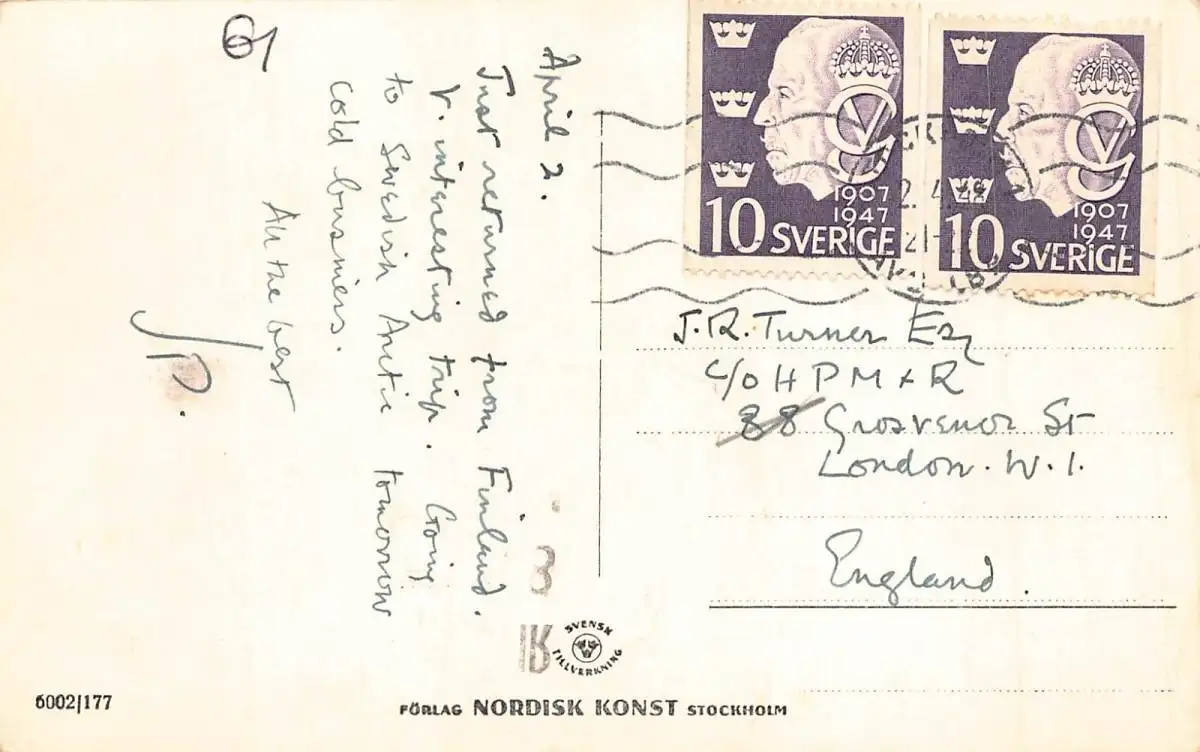 61
April 2.
Just returned from Finland.
V. interesting trip. Going
to Swedish Arctic tomorrow
cold business.
All the best
JP.
10 SVERIGE
1907
1947
10 SVERIGE
1907
1947
2.4.48
J.R. Turner Esq
c/o H P M + R
88 Grosvenor St
London. W.1.
England.
3
SVENSK
TILLVERKNING
6002/177
FÖRLAG NORDISK KONST STOCKHOLM